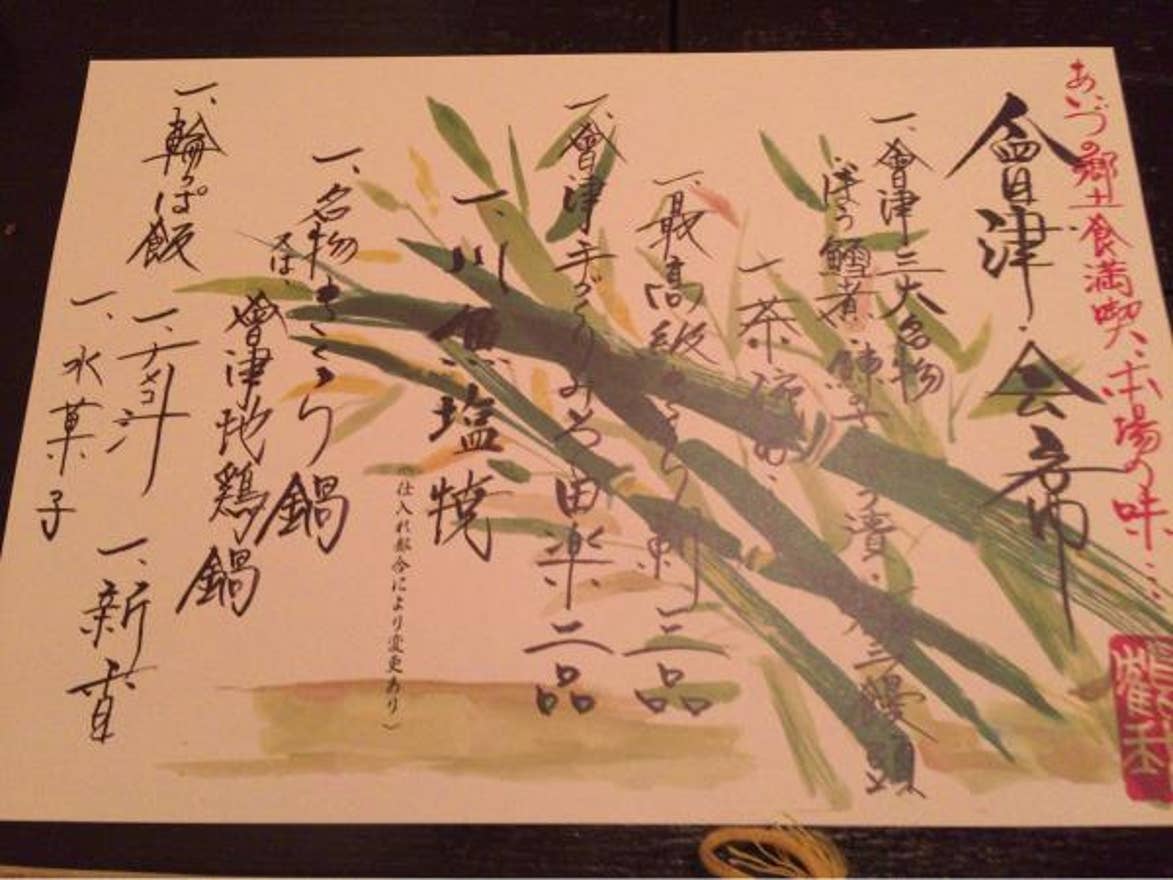 あいづの郷土食満喫、本場の味…
會津・会席
一、會津三大名物
ぼう鱈煮・鰊の山椒漬・三饅頭
一、茶碗
一、最高級さくら刺 二品
一、會津手づくりみそ田楽 二品
一、川魚塩焼
(仕入れ都合により変更あり)
一、名物さくら鍋
又は、會津地鶏鍋
一、輪っぱ飯
一、汁
一、新香
一、水菓子